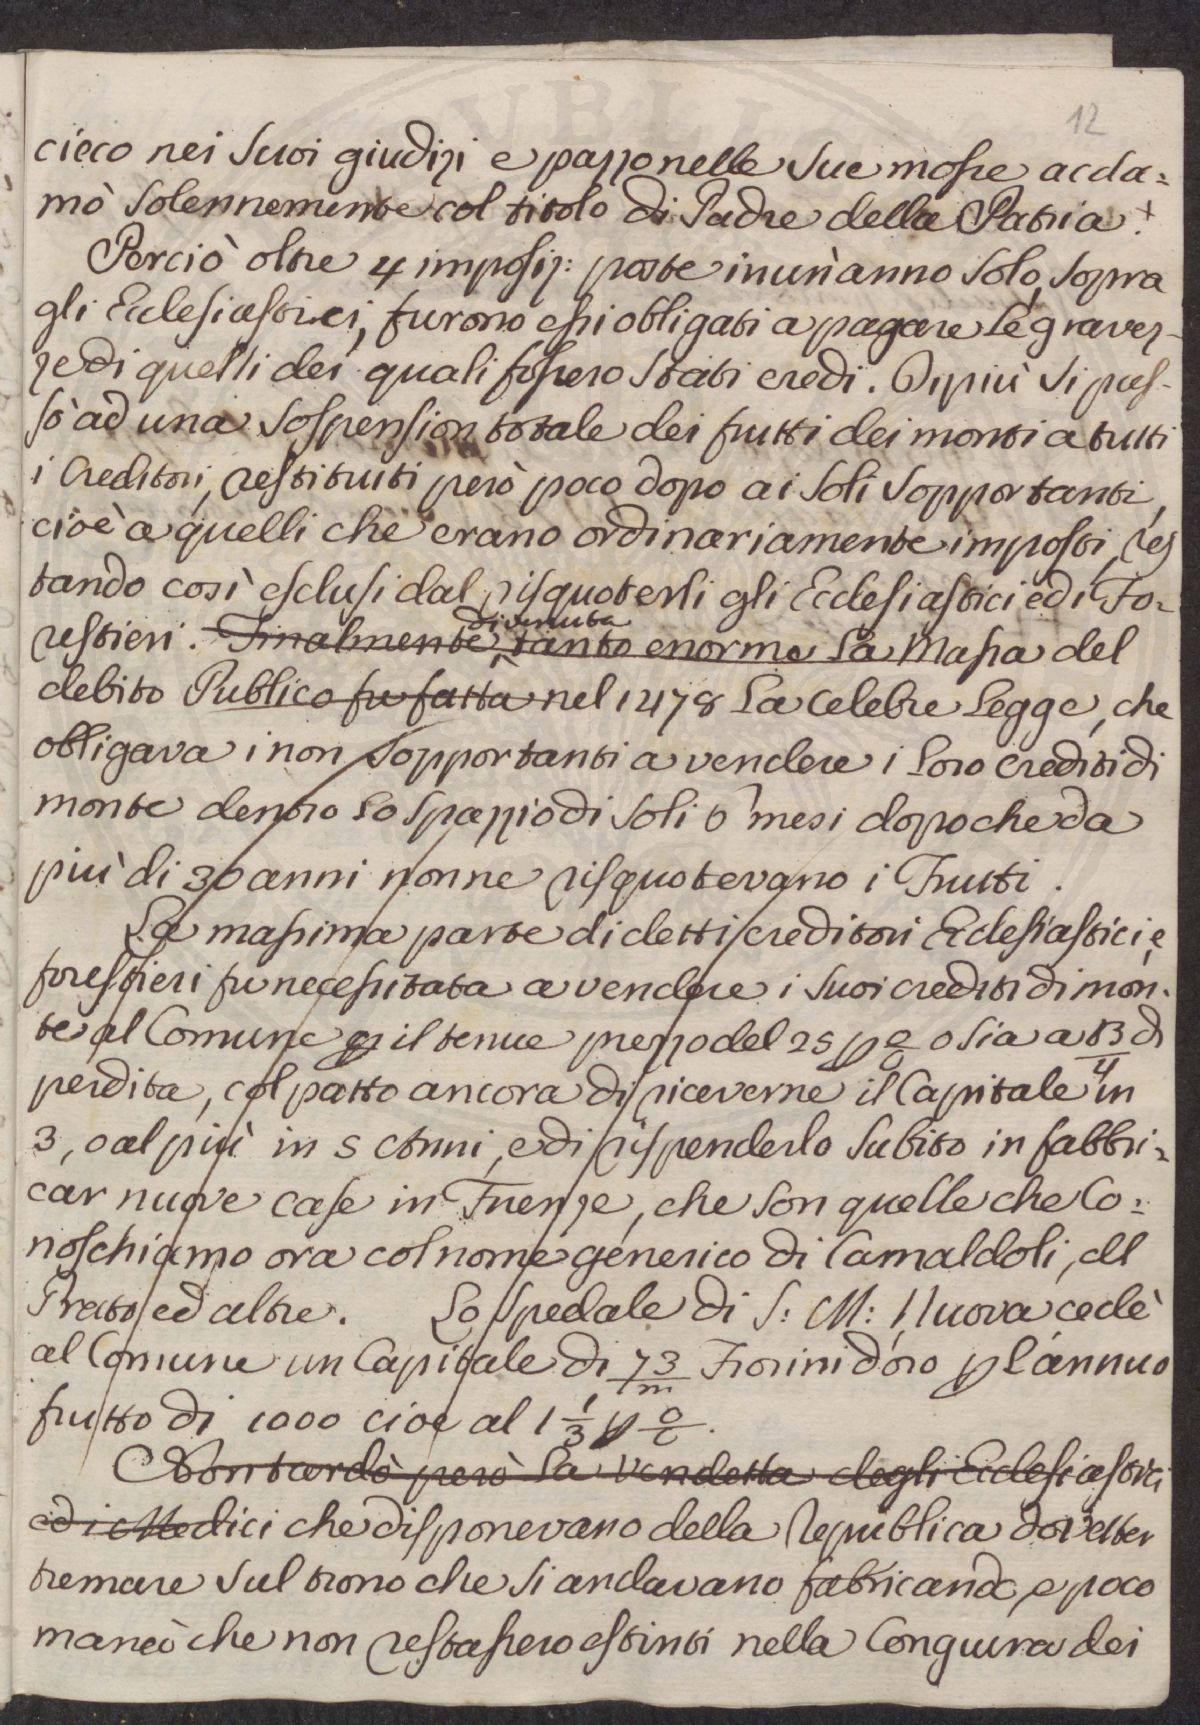 12
cieco nei suoi giudizi e pazzo nelle sue mosse accla=
mò solennemente col titolo di Padre della Patria. +
Perciò oltre 4 imposiz: poste in un'anno solo, sopra
gli Eclesiastici, furono essi obligati a pagare le gravez-
ze di quelli dei quali fossero stati eredi. Di più si pas-
sò ad una sospension totale dei frutti dei monti a tutti
i Creditori, restituiti però poco dopo ai soli sopportanti,
cioè a quelli che erano ordinariamente imposti, res
tando così esclusi dal risquoterli gli Ecclesiastici ed i Fo=
restieri. Finalmente divenuta tanto enorme la Massa del
debito Publico fu fatta nel 1478 la celebre Legge, che
obligava i non sopportanti a vendere i loro crediti di
monte dentro lo spazzio di soli 6 mesi dopo che da
più di 30 anni non ne risquotevano i Frutti.
La massima parte di detti creditori Eclesiastici, e
forestieri fu necessitata a vendere i suoi crediti di mon-
te al Comune p il tenue prezzo del 25 p o/o o sia a 13/4 di
perdita, col patto ancora di riceverne il Capitale in
3, o al più in 5 Anni, e di rispenderlo subito in fabbri=
car nuove case in Firenze, che son quelle che Co=
noschiamo ora col nome generico di Camaldoli, Al
Prato, ed altre. Lo Spedale di S: M: Nuova cedè
al Comune un Capitale di 73/m Fiorini d'oro p l'annuo
frutto di 1000 cioe al 1 1/3 p o/o.
Non tardò però la vendetta degli Eclesiastici
ed i Medici che disponevano della Republica dovetter
tremare sul trono che si andavano fabricando, e poco
mancò che non restassero estinti nella Congiura dei